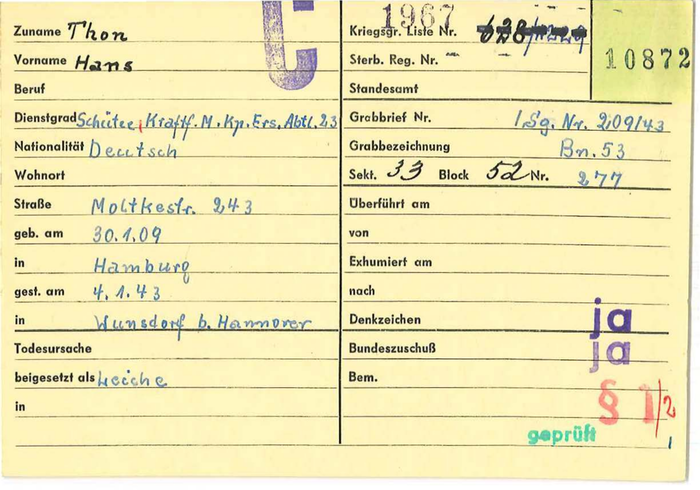 C
1967
Zuname Thon
Vorname Hans
Beruf
Dienstgrad Schütze, Kraftf. M. Kp. Ers. Abtl. 23
Nationalität Deutsch
Wohnort
Straße Moltkestr. 243
geb. am 30.1.09
in Hamburg
gest. am 4.1.43
in Wunsdorf b. Hannover
Todesursache
beigesetzt als Leiche
in
Kriegsgr. Liste Nr.
Sterb. Reg. Nr. - -
Standesamt
10872
Grabbrief Nr. / Sg. Nr. 209/43
Grabbezeichnung Bn. 53
Sekt. 33 Block 52 Nr. 277
Überführt am
von
Exhumiert am
nach
Denkzeichen ja
Bundeszuschuß ja
Bem.
§ 1/2
geprüft